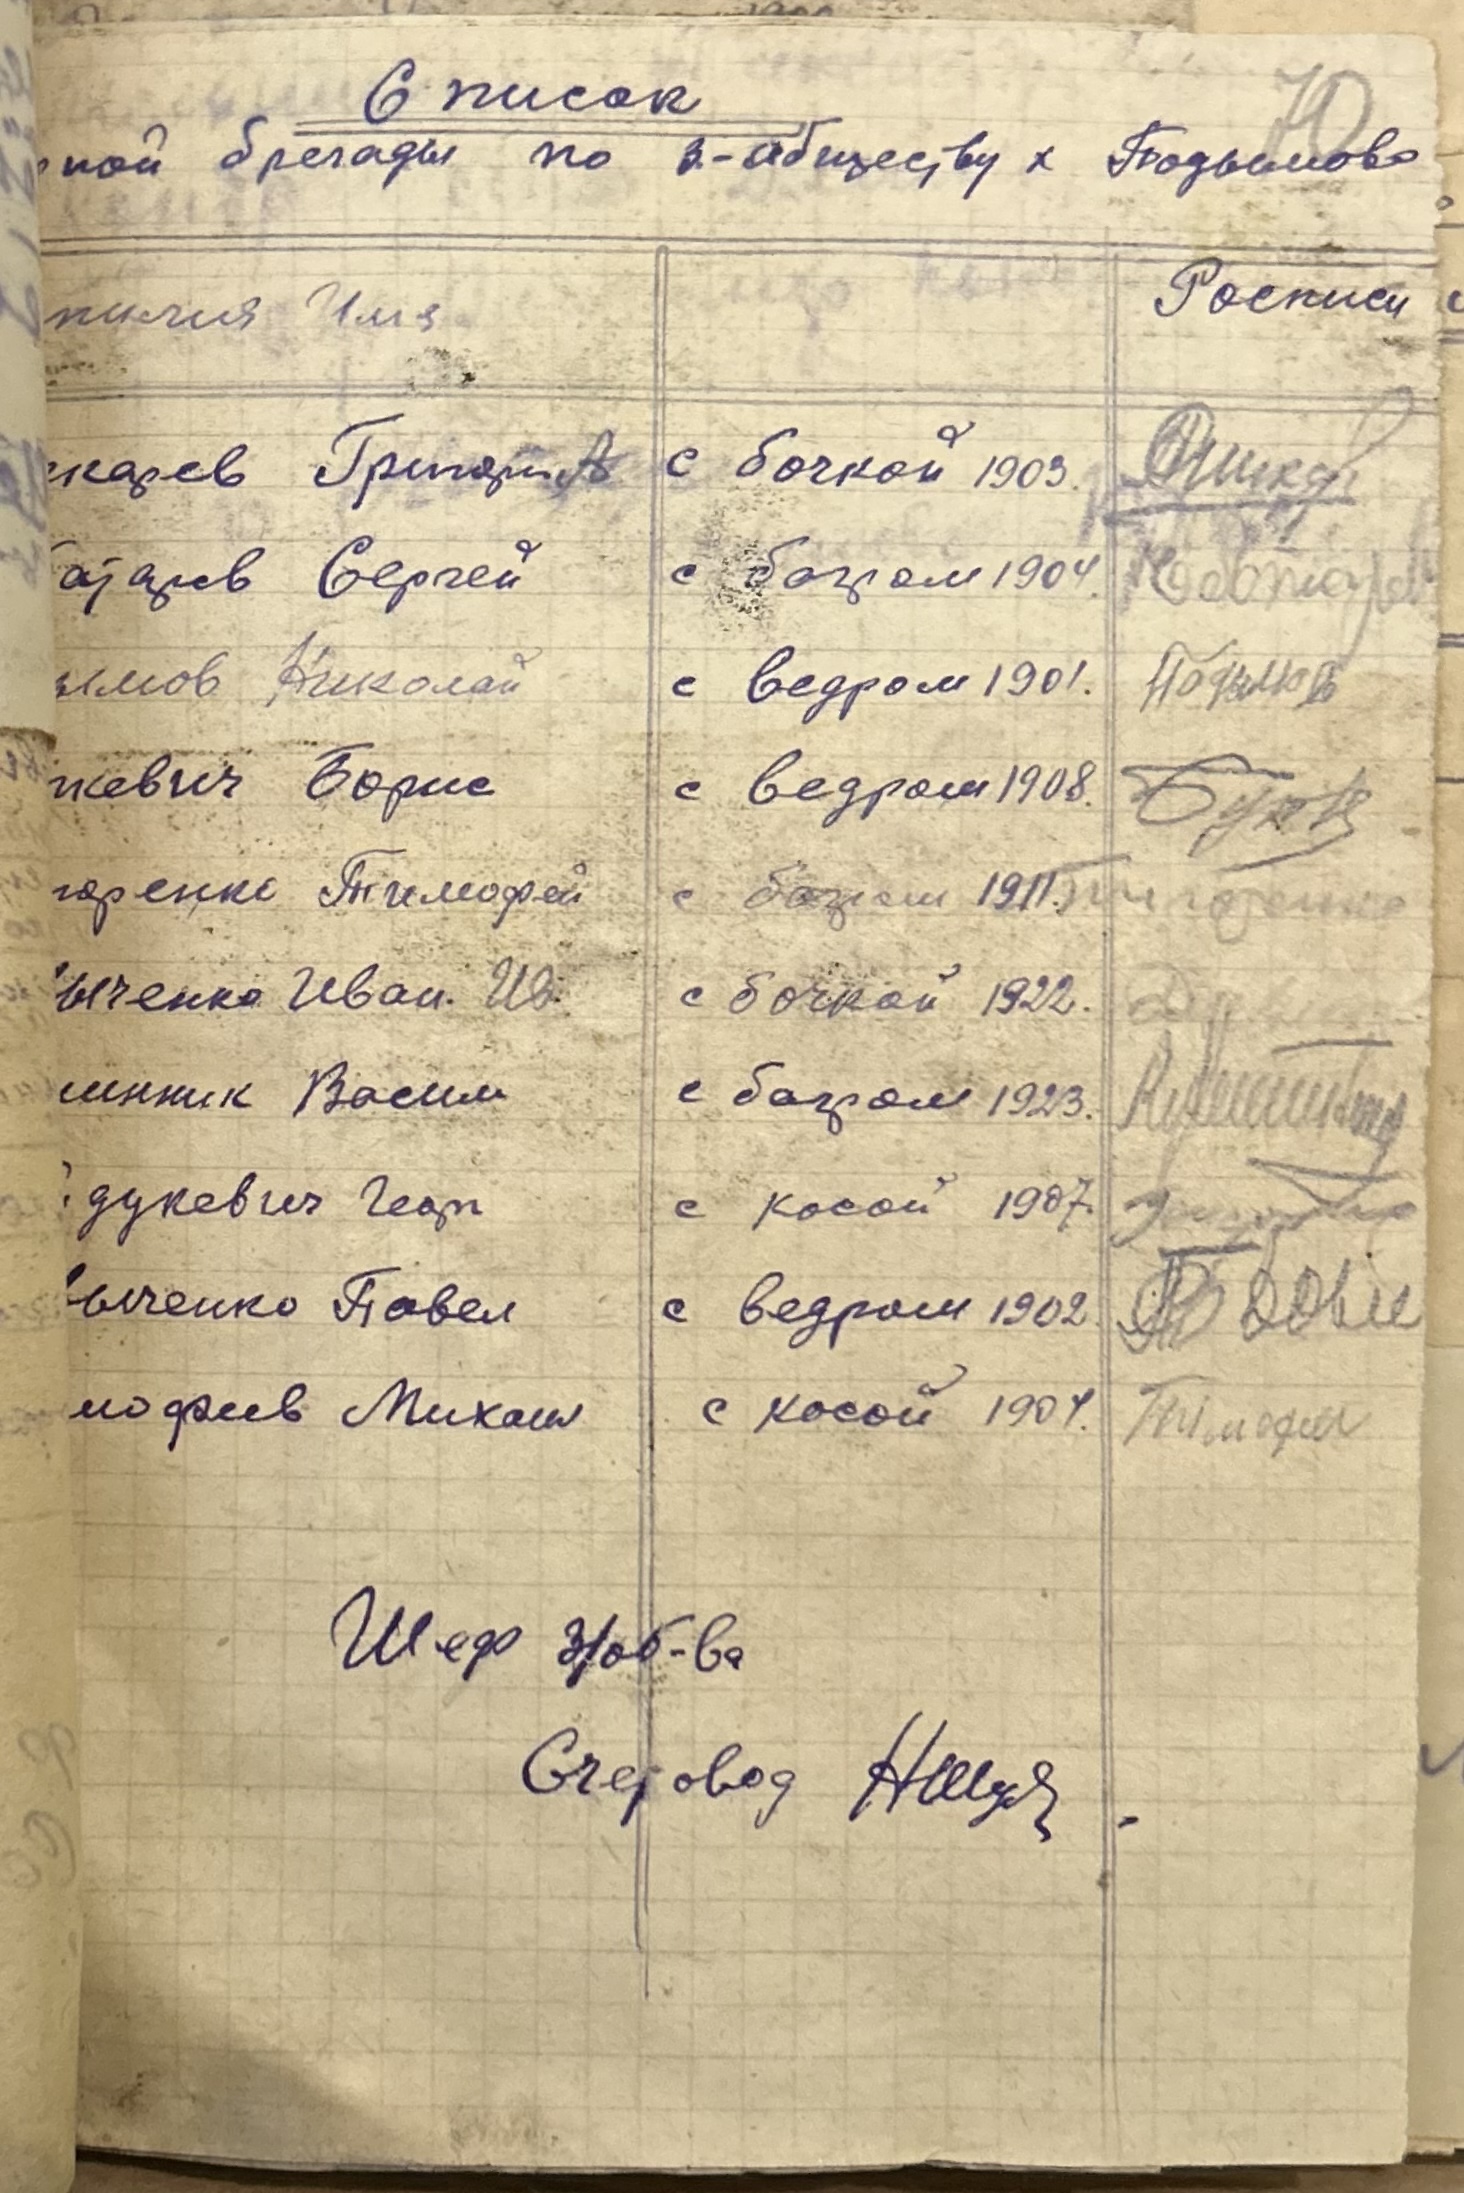 70
Список
ной брегады по з-обществу х Подымово
Имя Росписи
карев Григори А с бочкой 1903.
атарев Сергей с багром 1904.
ымов Николай с ведром 1901. Подымов
кевич Борис с ведром 1908.
горенко Тимофей с багром 1911.
ыченко Иван. Ив. с бочкой 1922.
шнник Васили с багром 1923.
дукевич Геор с косой 1907.
ыченко Павел с ведром 1902
мофеев Михаил с косой 1904. Тимофеи
Шеф з/об-ва
Счетовод